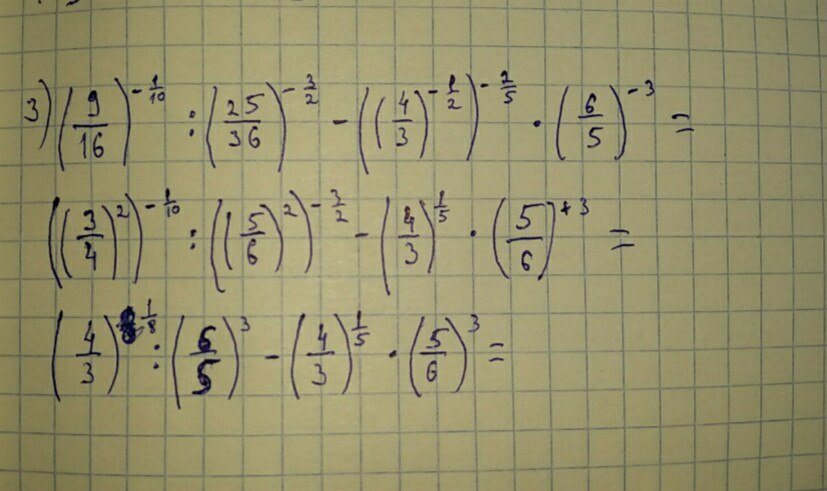 3) (9/16)^(-1/10) : (25/36)^(-3/2) - ((4/3)^(-1/2))^(-2/5) · (6/5)^(-3) =
((3/4)^2)^(-1/10) : ((5/6)^2)^(-3/2) - (4/3)^(1/5) · (5/6)^(+3) =
(4/3)^(1/8) : (6/5)^3 - (4/3)^(1/5) · (5/6)^3 =